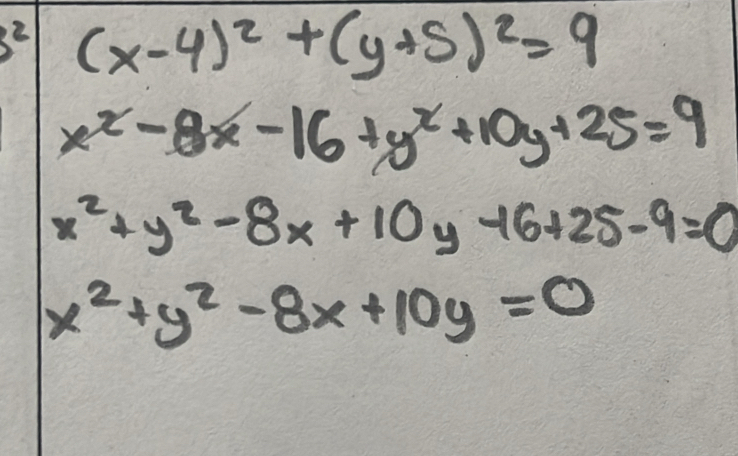 3²
(x-4)² +(y+5)²=9
x²-8x-16+y²+10y+25=9
x²+y²-8x+10y-16+25-9=0
x²+y²-8x+10y=0